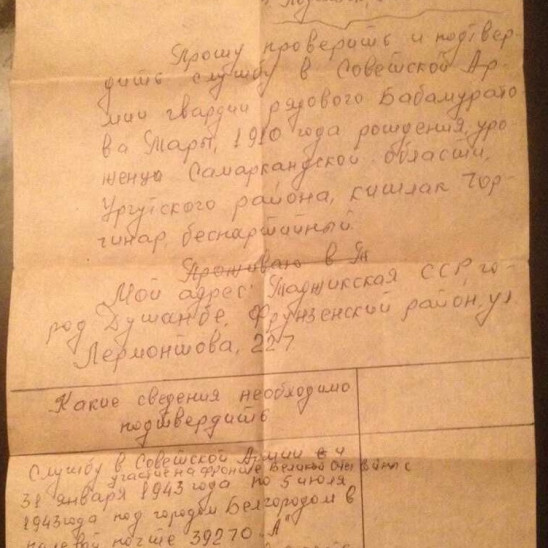 Прошу проверить и подтвер-
дить службу в Советской Ар-
мии гвардии рядового Бабамурато
ва Тары, 1910 года рождения, уро-
женца Самаркандской области,
Ургутского района, кишлак Чор-
чинар, беспартийный.
Проживаю в Т
Мой адрес: Таджикская ССР, го-
род Душанбе, Фрунзенский район, ул.
Лермонтова, 227
Какие сведения необходимо
подтвердить
Службу в Советской Армии и
участие на фронте Великой Отеч. войны с
31 января 1943 года по 5 июля
1943 года под городом Белгородом в
полевой почте 39270 "А"